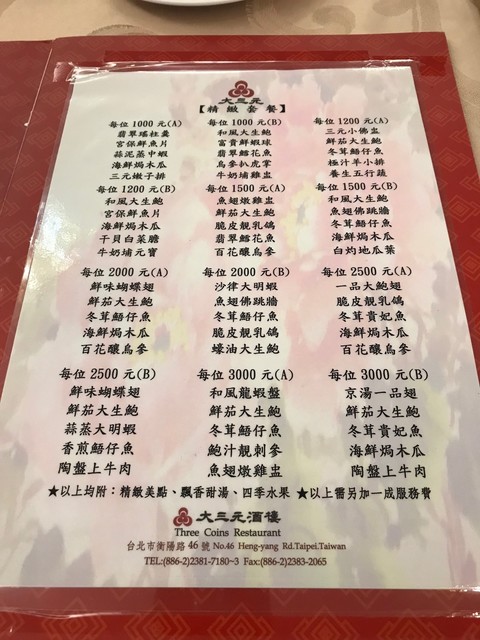 大三元
【精緻套餐】
每位 1000 元(A)
翡翠瑤柱羹
宮保鮮魚片
蒜泥蒸中蝦
海鮮焗木瓜
三元嫩子排
每位 1000 元(B)
和風大生鮑
富貴鮮蝦球
翡翠鱈花魚
烏參扒虎掌
牛奶埔雞盅
每位 1200 元(A)
三元小佛盅
鮮茄大生鮑
冬茸鮕仔魚
極汁羊小排
養生五行蔬
每位 1200 元(B)
和風大生鮑
宮保鮮魚片
海鮮焗木瓜
干貝白菜膽
牛奶埔元寶
每位 1500 元(A)
魚翅燉雞盅
鮮茄大生鮑
脆皮靚乳鴿
翡翠鱈花魚
百花釀烏參
每位 1500 元(B)
和風大生鮑
魚翅佛跳牆
冬茸鮕仔魚
海鮮焗木瓜
白灼地瓜葉
每位 2000 元(A)
鮮味蝴蝶翅
鮮茄大生鮑
冬茸鮕仔魚
海鮮焗木瓜
百花釀烏參
每位 2000 元(B)
沙律大明蝦
魚翅佛跳牆
冬茸鮕仔魚
脆皮靚乳鴿
蠔油大生鮑
每位 2500 元(A)
一品大鮑翅
脆皮靚乳鴿
冬茸貴妃魚
海鮮焗木瓜
百花釀烏參
每位 2500 元(B)
鮮味蝴蝶翅
鮮茄大生鮑
蒜蒸大明蝦
香煎鮕仔魚
陶盤上牛肉
每位 3000 元(A)
和風龍蝦盤
鮮茄大生鮑
冬茸鮕仔魚
鮑汁靚刺參
魚翅燉雞盅
每位 3000 元(B)
京湯一品翅
鮮茄大生鮑
冬茸貴妃魚
海鮮焗木瓜
陶盤上牛肉
★以上均附：精緻美點、飄香甜湯、四季水果 ★以上需另加一成服務費
大三元酒樓
Three Coins Restaurant
台北市衡陽路 46 號 No.46 Heng-yang Rd.Taipei.Taiwan
TEL:(886-2)2381-7180~3 Fax:(886-2)2383-2065